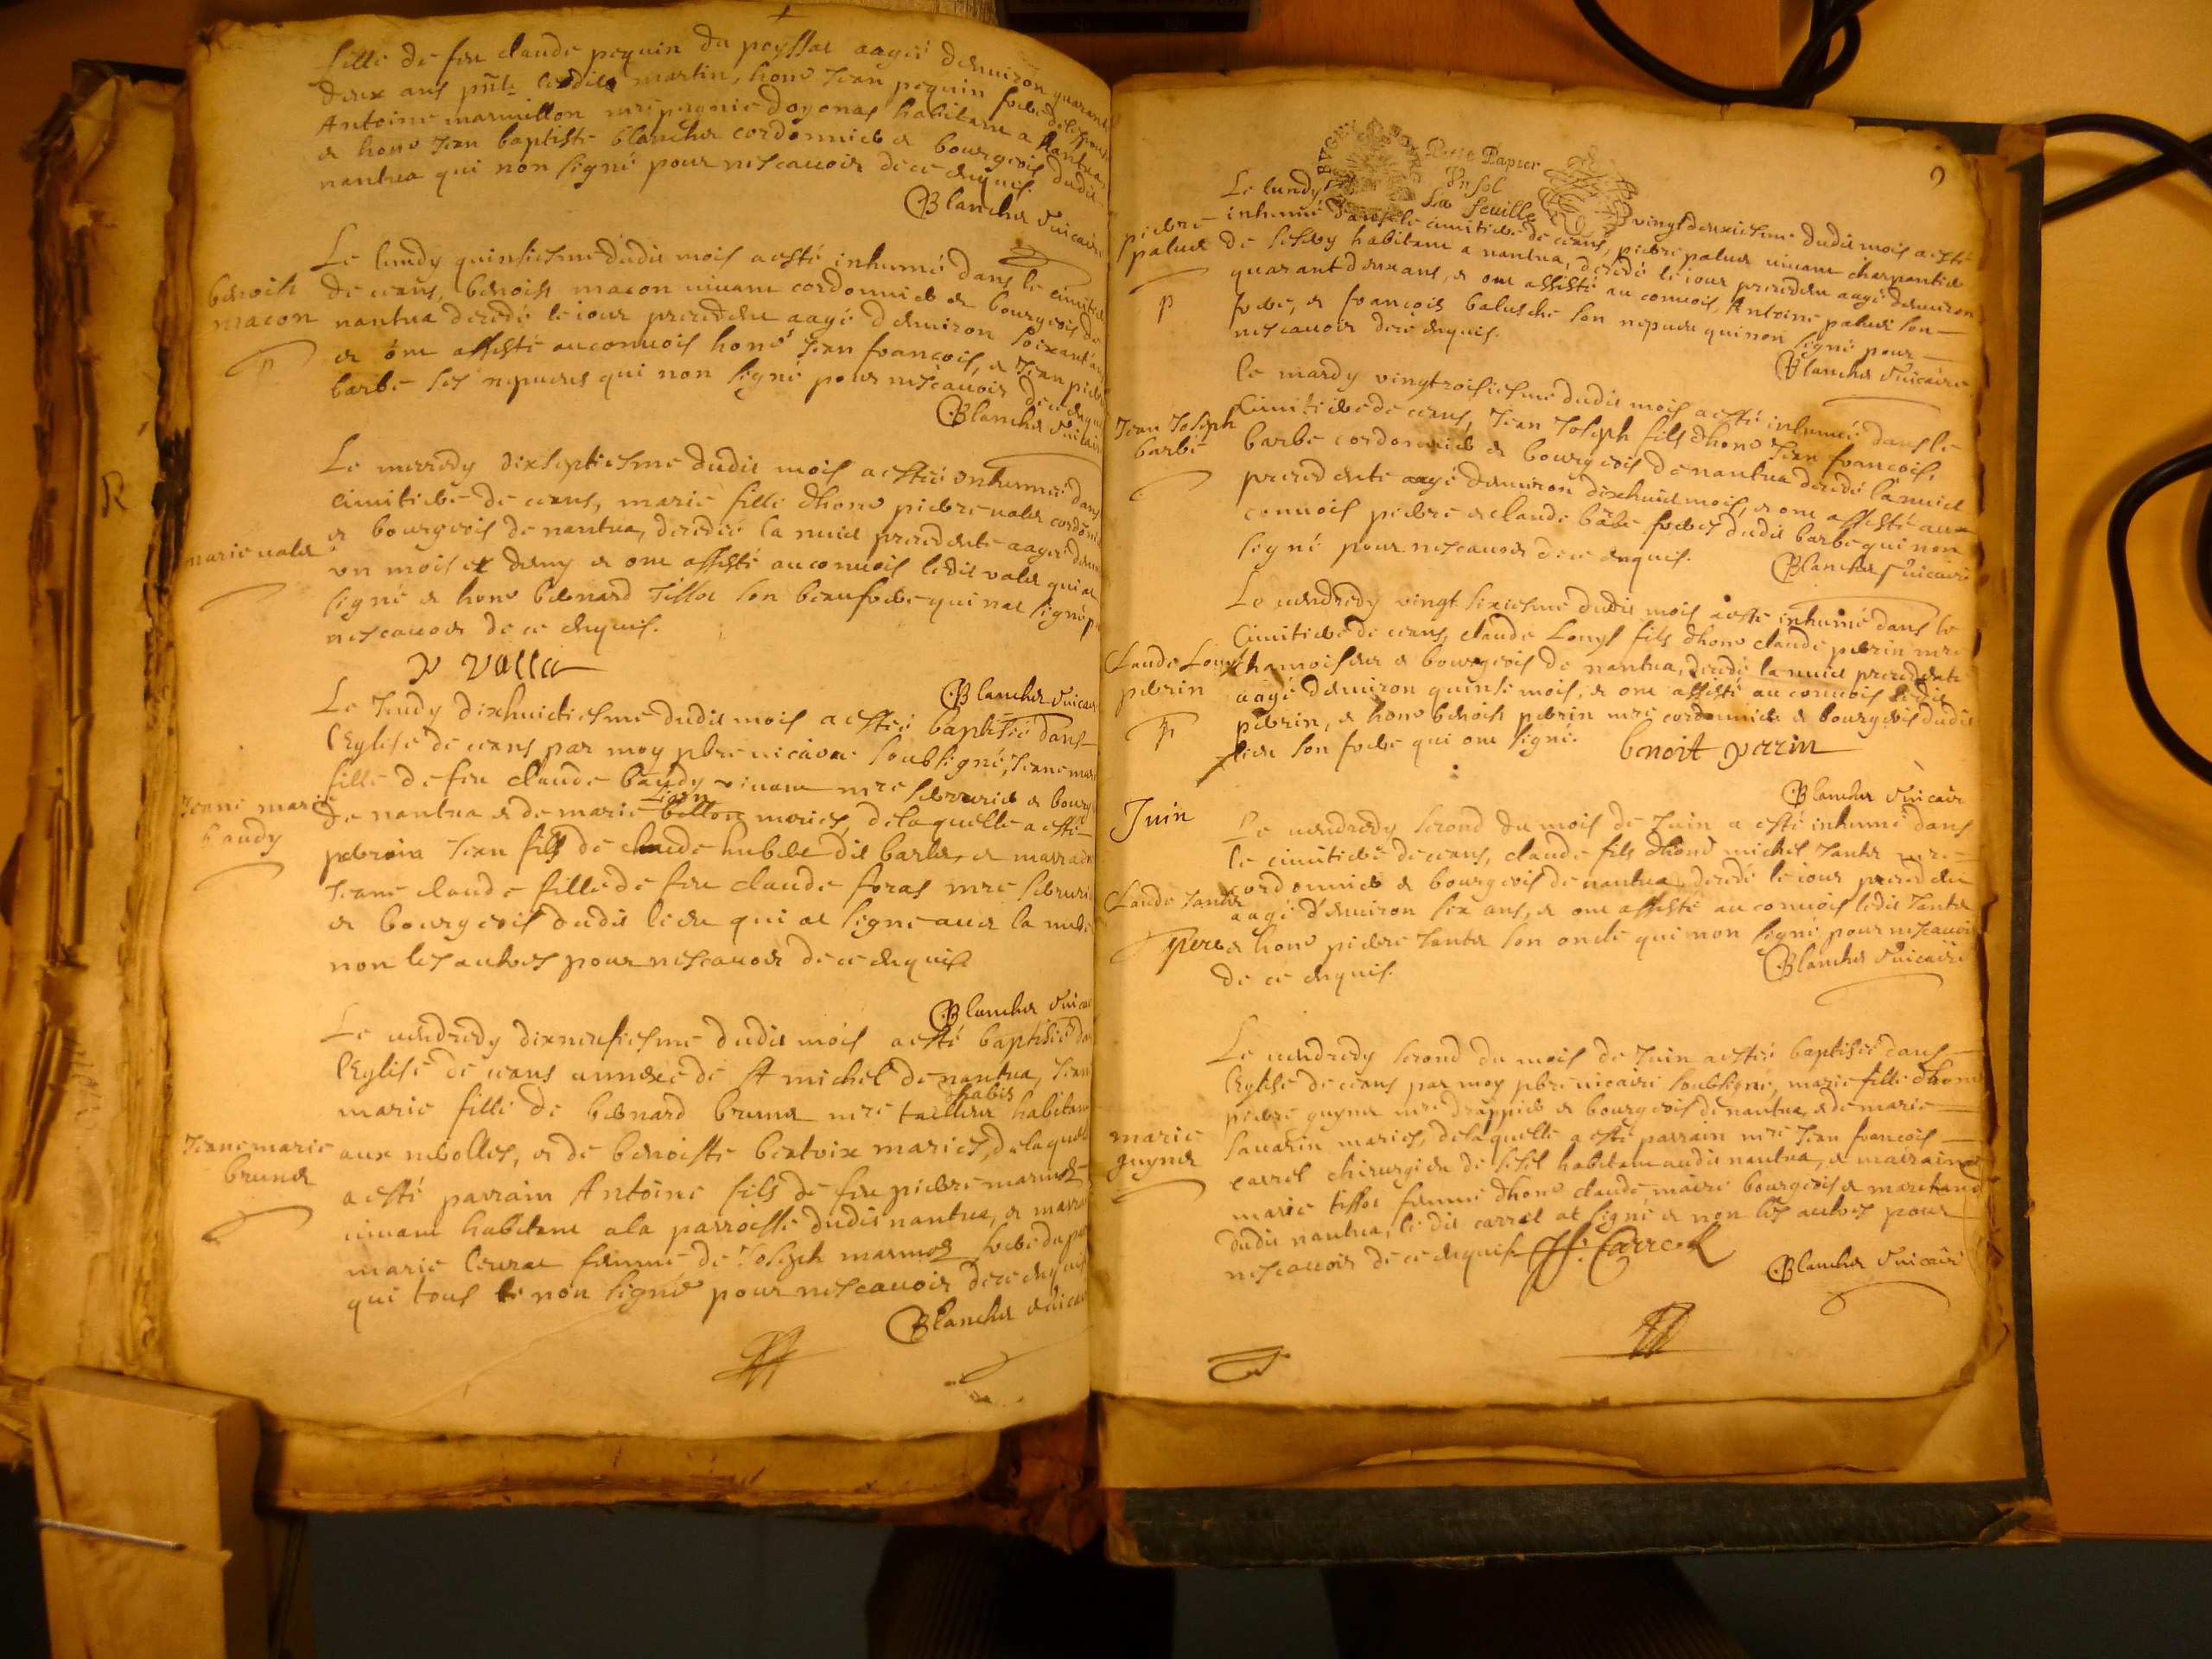 fille de feu claude pequin du poyssat aagée denviron quarante
deux ans pñts lesdits martin, hono Jean pequin frere de lespouse
Antoine marmillon mre pignie doyonas habitant a nantua,
et hono Jean baptiste blanchet cordonnier et bourgeois dudit
nantua qui non signé pour nescavoir de ce enquis.
Blanchet Vicaire
Le lundy quinsiesme dudit mois a esté inhumé dans le cimitiere
benoist
macon
de ceans, benoist macon vivant cordonnier et bourgeois de
nantua decedé le iour precedent aagé denviron soixante ans
et ont assisté au convois hono Jean francois, et Jean pierre
barbe ses nepveus qui non signé pour nescavoir de ce enquis
Blanchet Vicaire
Le mecredy dixseptiesme dudit mois a estée enhumée dans
cimitiere de ceans, marie fille dhono pierre valet cordonnier
et bourgeois de nantua, decedée la nuit precedente aagée denviron
marie valet
un mois et demy et ont assisté au convois ledit valet qui at
signé et hono bernard Tissot son beaufrere qui nat signé p
nescavoir de ce enquis.
p vallet
Blanchet Vicaire
Le Jeudy dixhuictiesme dudit mois a estée baptisée dans
lEglise de ceans par moy pbre vicaire soubsigné, Jeane marie
fille de feu claude baudy vivant mre serrurier et bourg
Jeane marie
baudy
de nantua et de marie billon mariés, de laquelle a esté
perrain Jean fils de claude hubert dit barlet, et marraine
Jeane claude fille de feu claude foras mre serrurier
et bourgeois dudit lieu qui at signe avec la mere
non les autres pour nescavoir de ce enquis
Blanchet Vicaire
Le vendredy dixneufiesme dudit mois a esté baptisée dans
lEglise de ceans annexe de St michel de nantua, Jeane
habis
marie fille de bernard brunet mre tailleur habitant
Jeane marie
brunet
aux nerolles, et de benoiste beatrix mariés, de laquelle
a esté parrain Antoine fils de feu pierre marmet
vivant habitant a la parroisse dudit nantua, et marraine
marie levrat femme de Joseph marmet frere du parrain
qui tous non signé pour nescavoir de ce enquis
Blanchet Vicaire
9
BVGEY
Petit Papier
Vn sol
La feuille
Le lundy vingtdeuxiesme dudit mois a esté
pierre
palud
p
inhumé dans le cimitiere de ceans, pierre palud vivant charpantier
de lesley habitant a nantua, decedé le iour precedent aagé denviron
quarantdeux ans, et ont assisté au convois, Antoine palud son
frere, et francois balusche son nepveu qui non signé pour
nescavoir de ce enquis.
Blanchet Vicaire
Le mardy vingtroisiesme dudit mois a esté inhumé dans le
Jean Joseph
barbe
cimitiere de ceans, Jean Joseph fils dhono Jean francois,
barbe cordonnier et bourgeois de nantua decedé la nuit
precedente aagé denviron dixhuit mois, et ont assisté au
convois pierre et claude barbe freres dudit barbe qui non
signé pour nescavoir de ce enquis.
Blanchet Vicaire
Le vendredy vingt sixiesme dudit mois a esté inhumé dans le
cimitiere de ceans, claude Louys fils dhono claude perrin mre
Claude Louys
perrin
p
chamoiseur et bourgeois de nantua, decedé la nuit precedente
aagé denviron quinse mois, et ont assisté au convois ledit
perrin, et hono benoist perrin mre cordonnier et bourgeois dudit
lieu son frere qui ont signé.
benoit perrin
Blanchet Vicaire
Juin
Le vendredy second du mois de Juin a esté inhumé dans
le cimitiere de ceans, claude fils dhono michel Jantet mre
cordonnier et bourgeois de nantua, decedé le iour precedent
Claude Jantet
aagé denviron six ans, et ont assisté au convois ledit Jantet
pere et hono pierre Jantet son oncle qui non signé pour nescavoir
de ce enquis.
Blanchet Vicaire
Le vendredy second du mois de Juin a estée baptisée dans
lEglise de ceans par moy pbre vicaire soubsigné, marie fille dhono
pierre guynet mre drappier et bourgeois de nantua, et de marie
marie
guynet
savarin mariés, de laquelle a esté parrain mre Jean francois
carrel chirurgien de sesel habitant audit nantua, et marraine
marie tissot femme dhono claude maire bourgeois et marchand
dudit nantua, le dit carrel at signé et non les autres pour
nescavoir de ce enquis
Jf. Carrel
Blanchet Vicaire